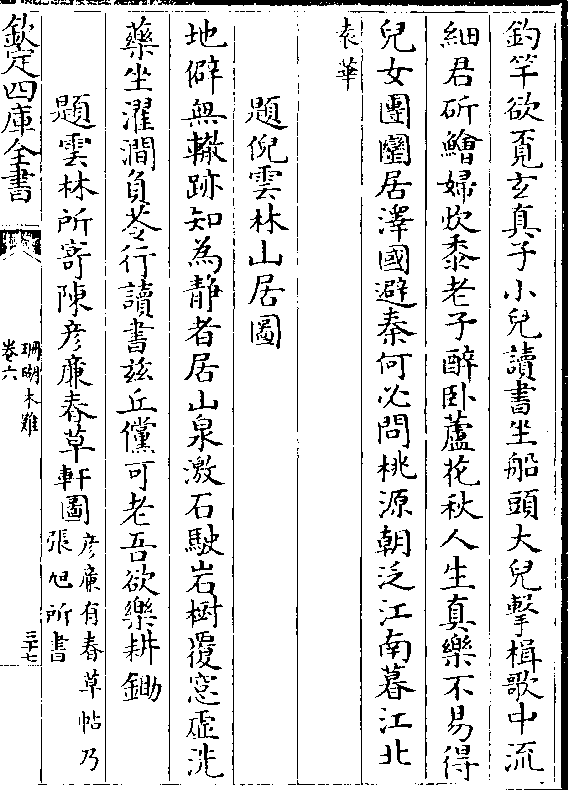 釣竿欲覔玄真子小兒讀書坐船頭大兒擊楫歌中流
細君斫鱠婦炊黍老子醉卧蘆花秋人生真樂不易得
兒女團圞居澤國避秦何必問桃源朝泛江南暮江北
袁華
題倪雲林山居圖
地僻無轍跡知為靜者居山泉激石駛岩樹覆窓虛洗
藥坐濯澗負苓行讀書兹丘儻可老吾欲樂耕鋤
題雲林所寄陳彦廉春草軒圖彦廉有春草帖乃
張旭所書
欽定四庫全書
珊瑚木難
卷六
三十七